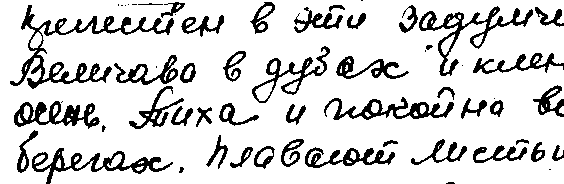 в эти задумчи
Величаво в дубах и клен
осень. Тиха и покойна во
берегах. Плавают листьи